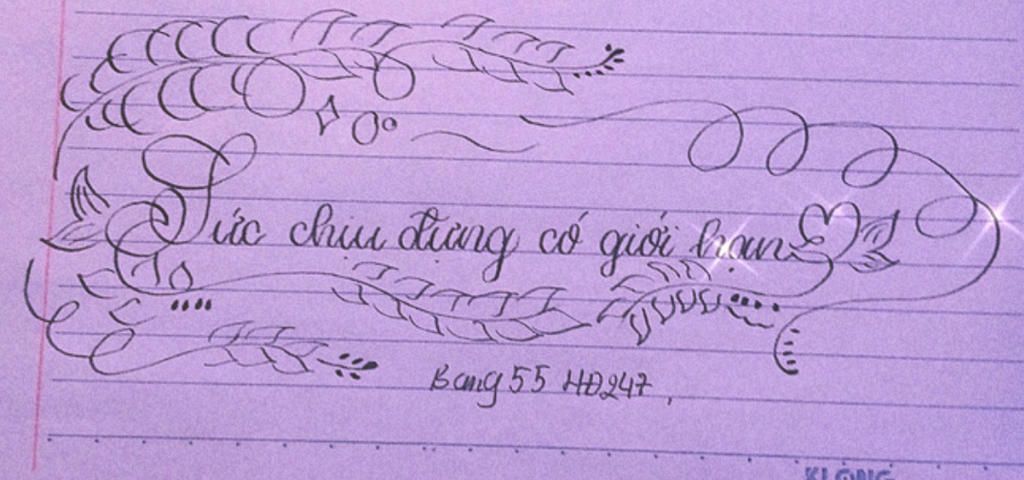 Sức chịu đựng có giới hạn
Bang 55 HĐ247,
KLONG